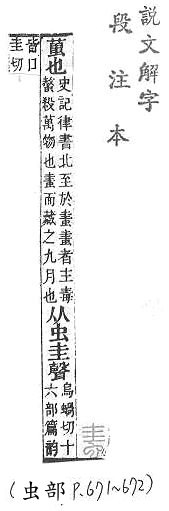 説文解字
段注本
蠆也
史記律書北至於
者主毒
螫殺萬物也
而藏之九月也
从虫圭聲
烏蝸切十
六部篇韵
皆口
圭切
(虫部 P.671~672)